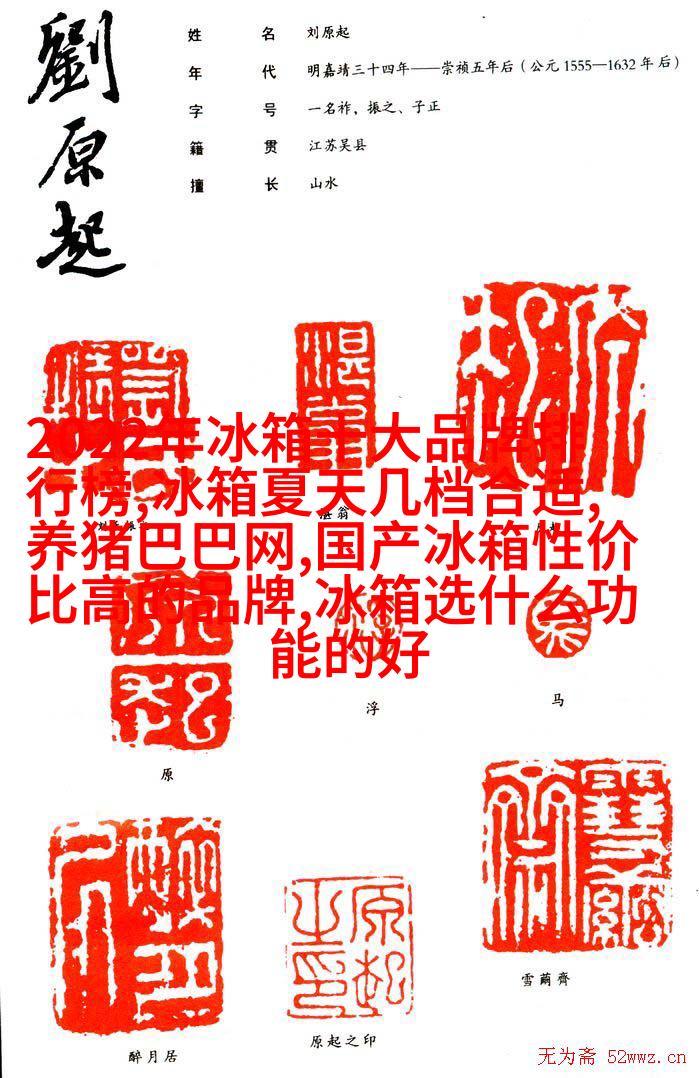 劉原起
姓名 刘原起
年代 明嘉靖三十四年——崇祯五年后（公元1555—1632年后）
字号 一名祚，振之、子正
籍贯 江苏吴县
擅长 山水
2022年冰箱十大品牌排
行榜,冰箱夏天几档合适,
养猪巴巴网,国产冰箱性价
比高的品牌,冰箱选什么功
能的好
浮
马
原
雪藟齊
原起之印
醉月居
无为斋 52wwz.cn